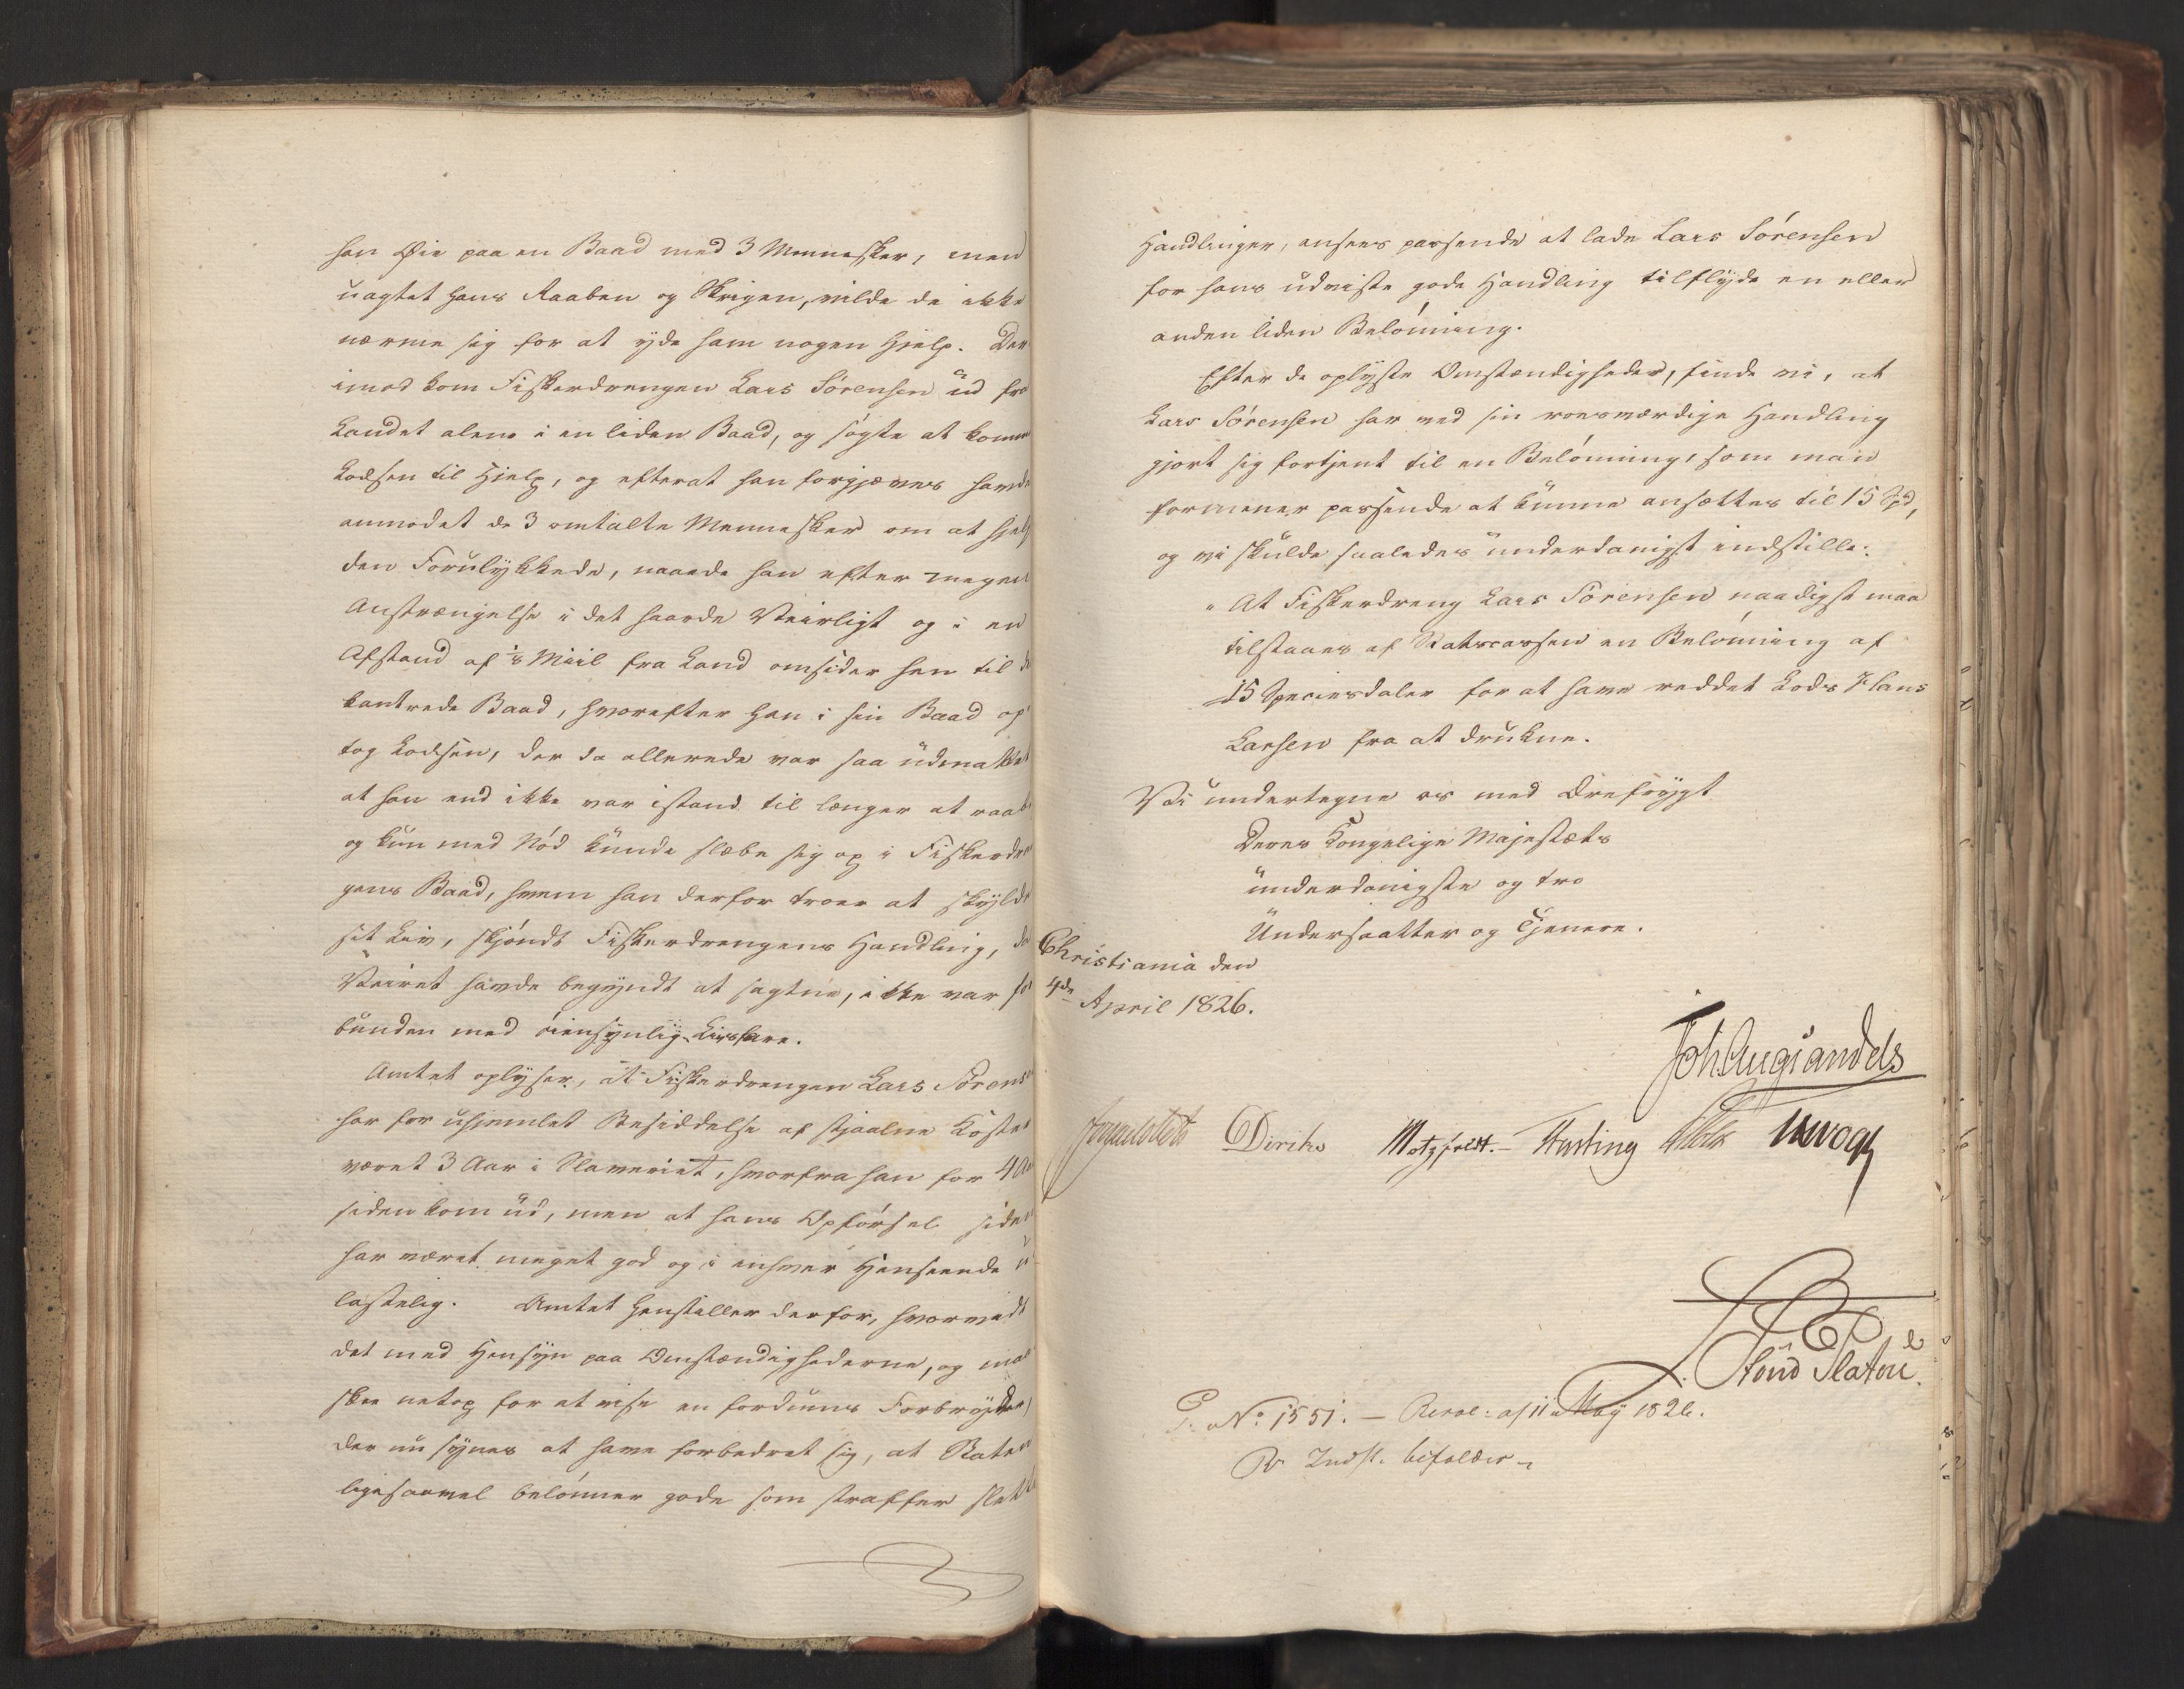 han Øie paa en Baad med 3 Mennesker, men
uagtet hans Raaben og Skrigen, vilde de ikke
nærme sig for at yde ham nogen Hjelp. Der
imod kom Fiskerdrengen Lars Sörensen ud fra
Landet alene i en liden Baad, og sögte at komme
Lodsen til Hjelp, og efterat han forgjæves havde
anmodet de 3 omtalte Mennesker om at hjelpe
den Forulykkede, naaede han efter megen
Anstrængelse i det haarde Veirligt og i en
Afstand af 1/8 Miil fra Land omsider hen til
kantrede Baad, hvorefter han i sin Baad op
tog Lodsen, der da allerede var saa udmattet
at han end ikke var istand til længer at raabe
og kun med Nöd kunde slæbe sig op i Fiskerdren
gens Baad, hvem han derfor troer at skylde
sit Liv, skjöndt Fiskerdrengens Handling, da
Veiret havde begyndt at sagtne, ikke var for
bunden med öiensynlig Livsfare.
Amtet oplyser, at Fiskerdrengen Lars Sörensen
har for uhjemlet Besiddelse af stjaalne Koster
været 3 Aar i Slaveriet, hvorfra han for 4 Aar
siden kom ud, men at hans Opförsel siden
har været meget god og i enhver Henseende u
lastelig. Amtet henstiller derfor, hvorvidt
det med Hensyn paa Omstændighederne, og maa
skee netop for at vise en fordums Forbryder,
der nu synes at have forbedret sig, at Staten
ligesaavel belönner gode som straffer slette
Handlinger, ansees passende at lade Lars Sörensen
for hans udviste gode Handling tilflyde en eller
anden liden Belönning.
Efter de oplyste Omstændigheder, finde vi, at
Lars Sörensen har ved sin roesværdige Handling
gjort sig fortjent til en Belönning, som man
formener passende at kunne ansættes til 15 Spd,
og vi skulde saaledes underdanigst indstille:
"At Fiskerdreng Lars Sörensen naadigst maa
tilstaaes af Statscassen en Belönning af
15 Speciesdaler for at have reddet Lods Hans
Larsen fra at drukne.
Vi undertegne os med Ærefrygt
Deres Kongelige Majestæts
underdanigste og tro
Undersaatter og Tjenere.
Christiania den
4de April 1826.
Joh. Aug. Sandels
Diriks Motzfeldt. Fasting JHVogt
P. No 1551. - Resol: af 11 May 1826.
Indst. bifaldes